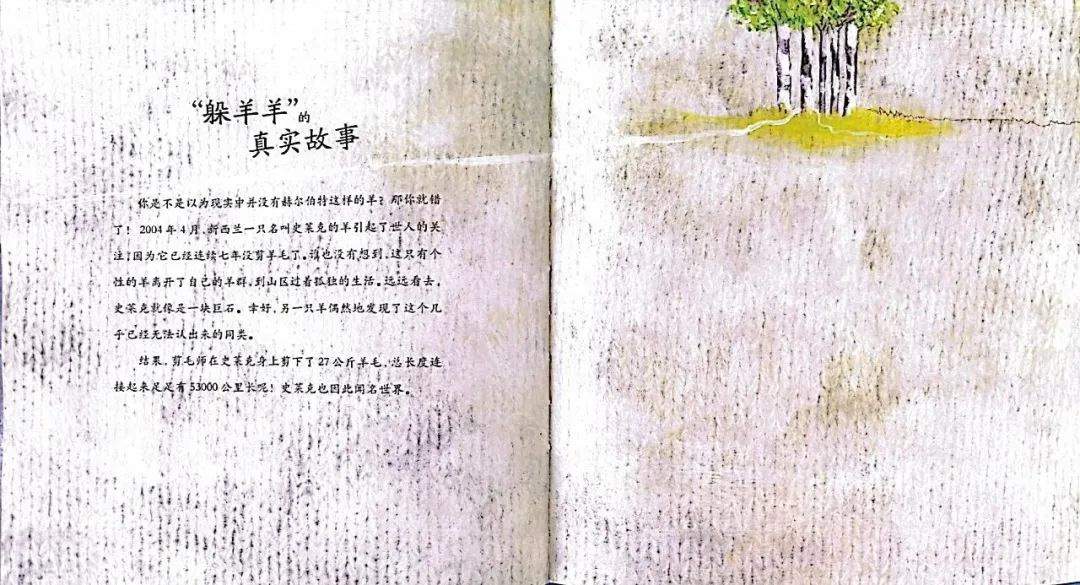 “躲羊羊”的
真实故事
你是不是以为现实中并没有赫尔伯特这样的羊？那你就错
了！2004年4月，新西兰一只名叫史莱克的羊引起了世人的关
注，因为它已经连续七年没剪羊毛了。谁也没有想到，这只有个
性的羊离开了自己的羊群，到山区过着孤独的生活。远远看去，
史莱克就像是一块巨石。幸好，另一只羊偶然地发现了这个几
乎已经无法认出来的同类。
结果，剪毛师在史莱克身上剪下了27公斤羊毛，总长度连
接起来足足有53000公里长呢！史莱克也因此闻名世界。